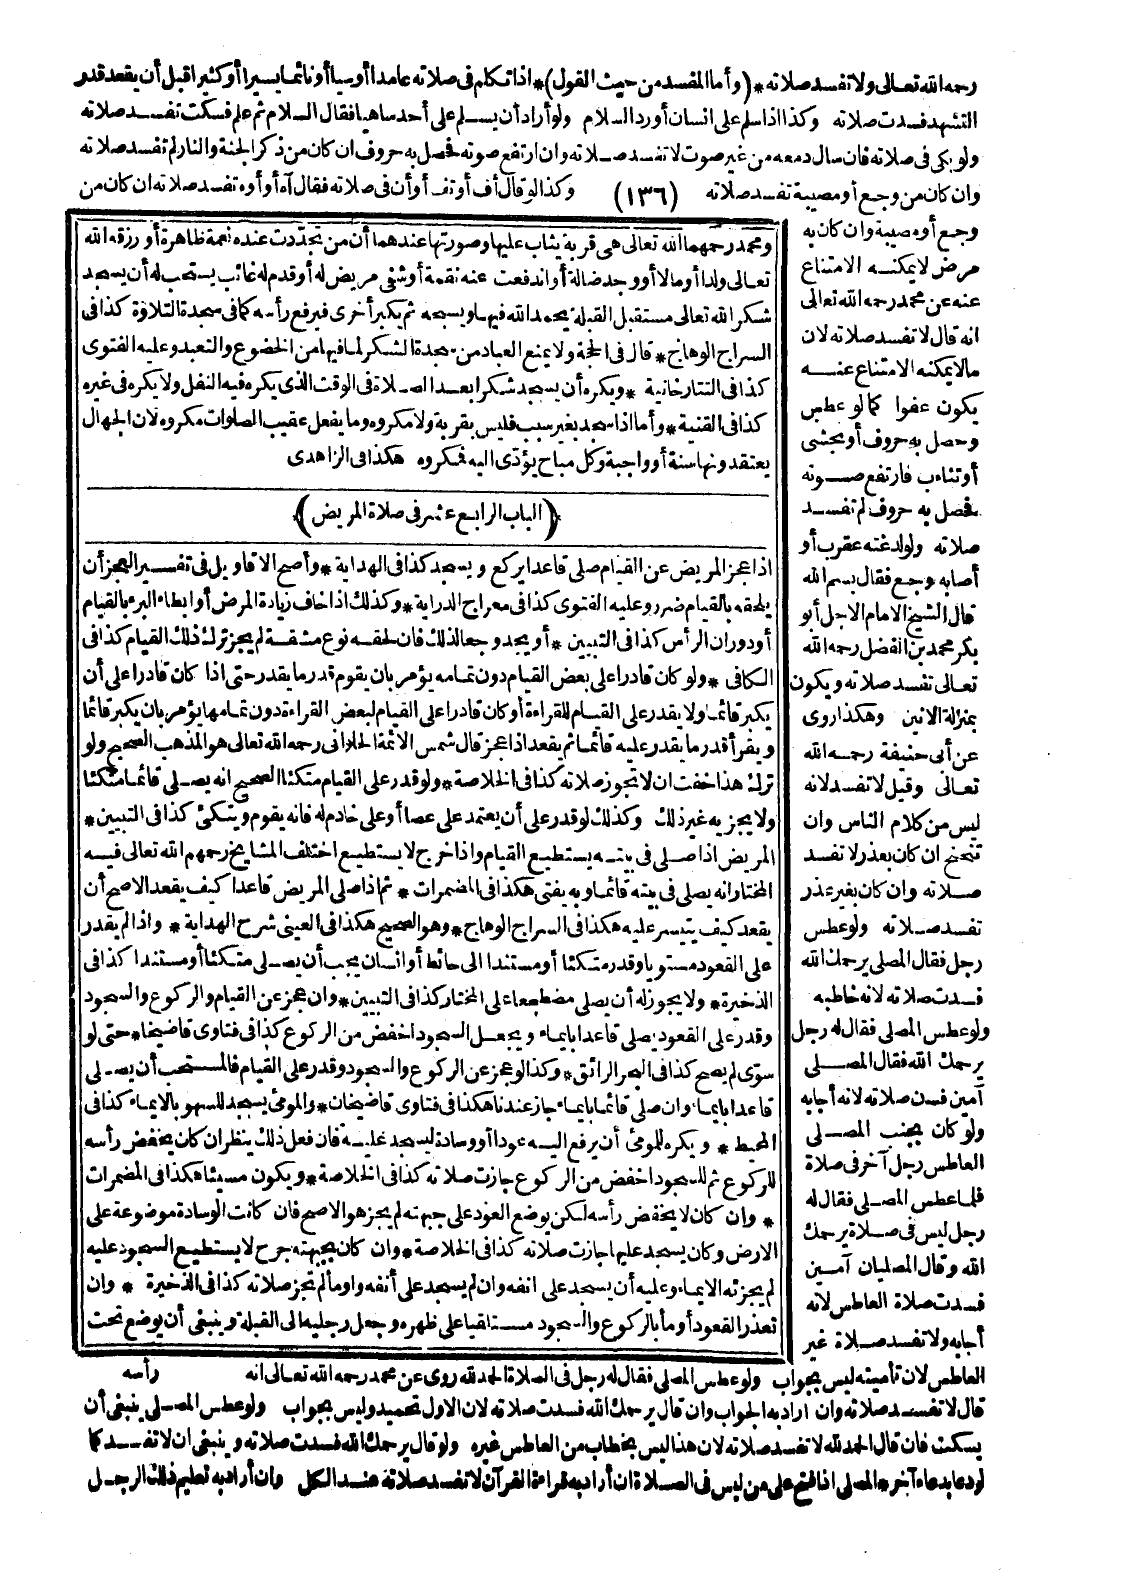 رحمه الله تعالى ولا تفسد صلاته * (وأما المفسد من حيث القول) * اذا تكلم فى صلاته عامدا أوسيا أونائما يسيرا أوكثيرا قبل أن يقعد قدر
التشهد فسدت صلاته وكذا اذا سلم على انسان أورد السلام ولو أراد أن يسلم على أحد ساهيا فقال السلام ثم علم فسكت تفسد صلاته
ولو بكى فى صلاته فان سال دمعه من غير صوت لا تفسد صلاته وان ارتفع صوته فحصل به حروف ان كان من ذكر الجنة والنار لم تفسد صلاته
وان كان من وجع أو مصيبة تفسد صلاته (١٣٦) وكذا لو قال أف أوتف أوأن فى صلاته فقال آه أوأوه تفسد صلاته ان كان من
وجع أو مصيبة وان كان به
مرض لا يمكنه الامتناع
عنه عن محمد رحمه الله تعالى
انه قال لا تفسد صلاته لان
مالا يمكنه الامتناع عنه
يكون عفوا كما لو عطس
وحصل به حروف أو تجشى
أو تثاءب فارتفع صوته
فحصل به حروف لم تفسد
صلاته ولو لدغته عقرب أو
أصابه وجع فقال بسم الله
قال الشيخ الامام الاجل أبو
بكر محمد بن الفضل رحمه الله
تعالى تفسد صلاته ويكون
بمنزلة الانين وهكذا روى
عن أبى حنيفة رحمه الله
تعالى وقيل لا تفسد لانه
ليس من كلام الناس وان
تنحنح ان كان بعذر لا تفسد
صلاته وان كان بغير عذر
تفسد صلاته ولو عطس
رجل فقال المصلى يرحمك الله
فسدت صلاته لانه خاطبه
ولو عطس المصلى فقال له رجل
يرحمك الله فقال المصلى
آمين فسدن صلاته لانه أجابه
ولو كان بجنب المصلى
العاطس رجل آخر فى صلاة
فلما عطس المصلى فقال له
رجل ليس فى صلاة يرحمك
الله وقال المصليان آمين
فسدت صلاة العاطس لانه
أجابه ولا تفسد صلاة غير
العاطس لان تأمينه ليس بجواب ولو عطس المصلى فقال له رجل فى الصلاة الحمد لله روى عن محمد رحمه الله تعالى انه
قال لا تفسد صلاته وان اراد به الجواب وان قال يرحمك الله فسدت صلاته لان الاول تحميد وليس بجواب ولو عطس المصلى ينبغى أن
يسكت فان قال الحمد لله لا تفسد صلاته لان هذا ليس بخطاب من العاطس غيره ولو قال يرحمك الله فسدت صلاته وينبغى ان لا تفسد كما
لو دعا بدعاء آخر * المصلى اذا فتح على من ليس فى الصلاة ان أراد به قراءة القرآن لا تفسد صلاته عند الكل وان أراد به تعليم ذلك الرجل
ومحمد رحمهما الله تعالى هى قربة يثاب عليها وصورتها عندهما أن من تجدّدت عنده نعمة ظاهرة أو رزقه الله
تعالى ولدا أو مالا أو وجد ضالة أو اندفعت عنه نقمة أو شفى مريض له أو قدم له غائب يستحب له أن يسجد
شكر الله تعالى مستقبل القبلة يحمد الله فيها ويسبحه ثم يكبر أخرى فيرفع رأسه كما فى سجدة التلاوة كذا فى
السراج الوهاج * قال فى الحجة ولا يمنع العباد من سجدة الشكر لما فيها من الخضوع والتعبد وعليه الفتوى
كذا فى التتارخانية * ويكره أن يسجد شكرا بعد الصلاة فى الوقت الذى يكره فيه النفل ولا يكره فى غيره
كذا فى القنية * وأما اذا سجد بغير سبب فليس بقربة ولا مكروه وما يفعل عقيب الصلوات مكروه لان الجهال
يعتقدونها سنة أو واجبة وكل مباح يؤدّى اليه فمكروه هكذا فى الزاهدى
(الباب الرابع عشر فى صلاة المريض)
اذا عجز المريض عن القيام صلى قاعدا يركع ويسجد كذا فى الهداية * وأصح الاقاويل فى تفسير العجز أن
يلحقه بالقيام ضرر وعليه الفتوى كذا فى معراج الدراية * وكذلك اذا خاف زيادة المرض أو ابطاء البرء بالقيام
أو دوران الرأس كذا فى التبيين * أو يجد وجعا لذلك فان لحقه نوع مشقة لم يجز ترك ذلك القيام كذا فى
الكافى * ولو كان قادرا على بعض القيام دون تمامه يؤمر بان يقوم قدر ما يقدر حتى اذا كان قادرا على أن
يكبر قائما ولا يقدر على القيام للقراءة أو كان قادرا على القيام لبعض القراءة دون تمامها يؤمر بان يكبر قائما
ويقرأ قدر ما يقدر عليه قائما ثم يقعد اذا عجز قال شمس الائمة الحلوانى رحمه الله تعالى هو المذهب الصحيح ولو
ترك هذا خفت ان لا تجوز صلاته كذا فى الخلاصة * ولو قدر على القيام متكئا الصحيح انه يصلى قائما متكئا
ولا يجزيه غير ذلك وكذلك لو قدر على أن يعتمد على عصا أو على خادم له فانه يقوم ويتكئ كذا فى التبيين *
المريض اذا صلى فى بيته يستطيع القيام واذا خرج لا يستطيع اختلف المشايخ رحمهم الله تعالى فيه
المختار انه يصلى فى بيته قائما وبه يفتى هكذا فى المضمرات * ثم اذا صلى المريض قاعدا كيف يقعد الاصح أن
يقعد كيف يتيسر عليه هكذا فى السراج الوهاج * وهو الصحيح هكذا فى العينى شرح الهداية * واذا لم يقدر
على القعود مستويا وقدر متكئا أو مستندا الى حائط أو انسان يجب أن يصلى متكئا أو مستندا كذا فى
الذخيرة * ولا يجوز له أن يصلى مضطجعا على المختار كذا فى التبيين * وان عجز عن القيام والركوع والسجود
وقدر على القعود يصلى قاعدا بايماء ويجعل السجود اخفض من الركوع كذا فى فتاوى قاضيخان * حتى لو
سوّى لم يصح كذا فى البحر الرائق * وكذا لو عجز عن الركوع والسجود وقدر على القيام فالمستحب أن يصلى
قاعدا بايماء وان صلى قائما بايماء جاز عندنا هكذا فى فتاوى قاضيخان * والمومئ يسجد للسهو بالايماء كذا فى
المحيط * ويكره للمومئ أن يرفع اليه عودا أو وسادة ليسجد عليه فان فعل ذلك ينظر ان كان يخفض رأسه
للركوع ثم للسجود اخفض من الركوع جازت صلاته كذا فى الخلاصة * ويكون مسيئا هكذا فى المضمرات
* وان كان لا يخفض رأسه لكن يوضع العود على جبهته لم يجز هو الاصح فان كانت الوسادة موضوعة على
الارض وكان يسجد عليها جازت صلاته كذا فى الخلاصة * وان كان بجبهته جرح لا يستطيع السجود عليه
لم يجزئه الايماء وعليه أن يسجد على انفه وان لم يسجد على أنفه وأومأ لم تجز صلاته كذا فى الذخيرة * وان
تعذر القعود أومأ بالركوع والسجود مستلقيا على ظهره وجعل رجليه الى القبلة وينبغى أن يوضع تحت
رأسه